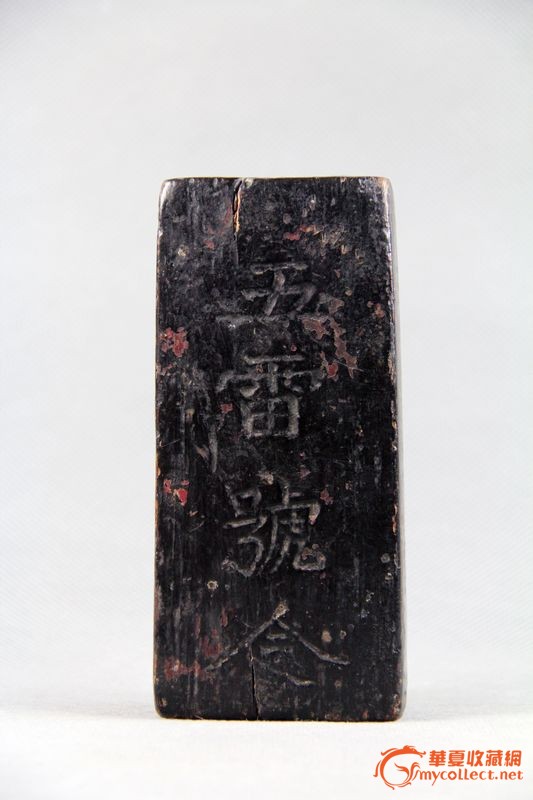 五雷號令
華夏收藏網
mycollect.net